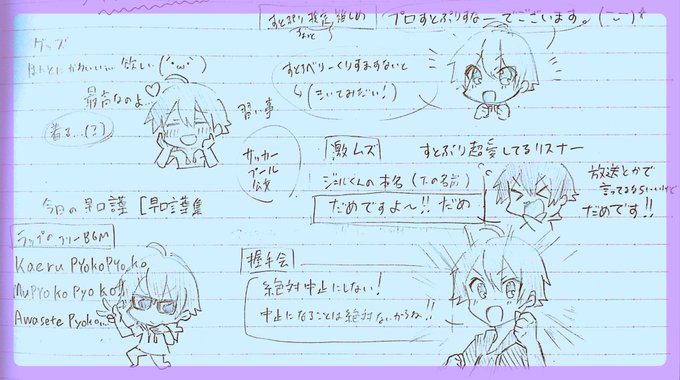 すとぷり検定 難しめ
プロすとぷりすなーでございます。
グッズ
ほんとにかわいいい 欲しい (´･ω･`)
すとろべりーくりすますないと
↳(きいてみたい!)
最高なのよ…♡
着る…(?)
習い事
サッカー
プール
公文
激ムズ
すとぷり超愛してるリスナー
ジェルくんの本名(下の名前)
だめですよ~!! だめ
放送とかで
言ってるらしいけど
だめです!!
今日の早口謹 [早口謹集
ラップのフリーBGM
Kaeru PYokoPYoko
MuPYoko PYoko!!
Awasete Pyoko...
握手会
絶対中止にしない!
中止になることは絶対ないからな!!